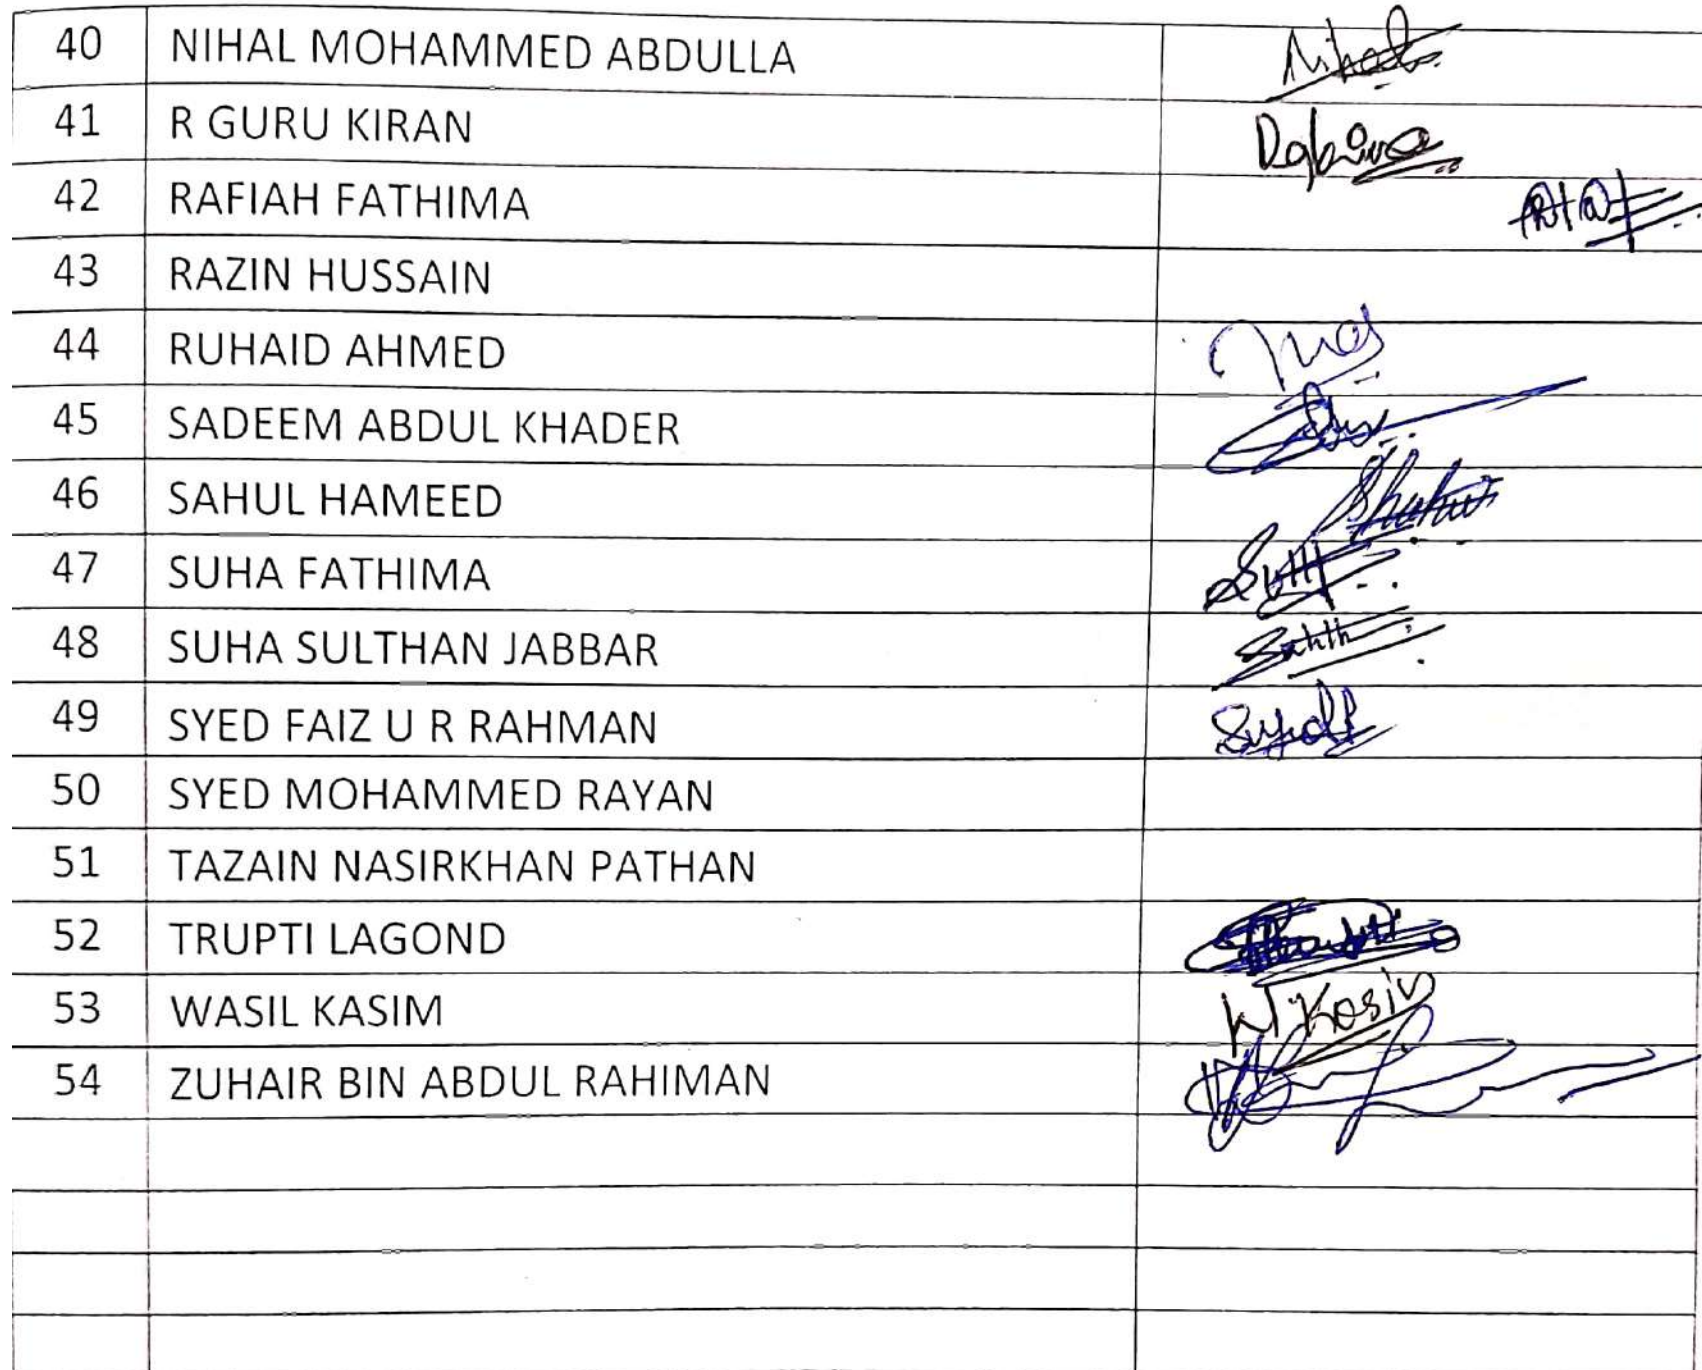 40 NIHAL MOHAMMED ABDULLA Nihal
41 R GURU KIRAN
42 RAFIAH FATHIMA
43 RAZIN HUSSAIN
44 RUHAID AHMED
45 SADEEM ABDUL KHADER
46 SAHUL HAMEED
47 SUHA FATHIMA
48 SUHA SULTHAN JABBAR
49 SYED FAIZ U R RAHMAN
50 SYED MOHAMMED RAYAN
51 TAZAIN NASIRKHAN PATHAN
52 TRUPTI LAGOND
53 WASIL KASIM W Kasim
54 ZUHAIR BIN ABDUL RAHIMAN